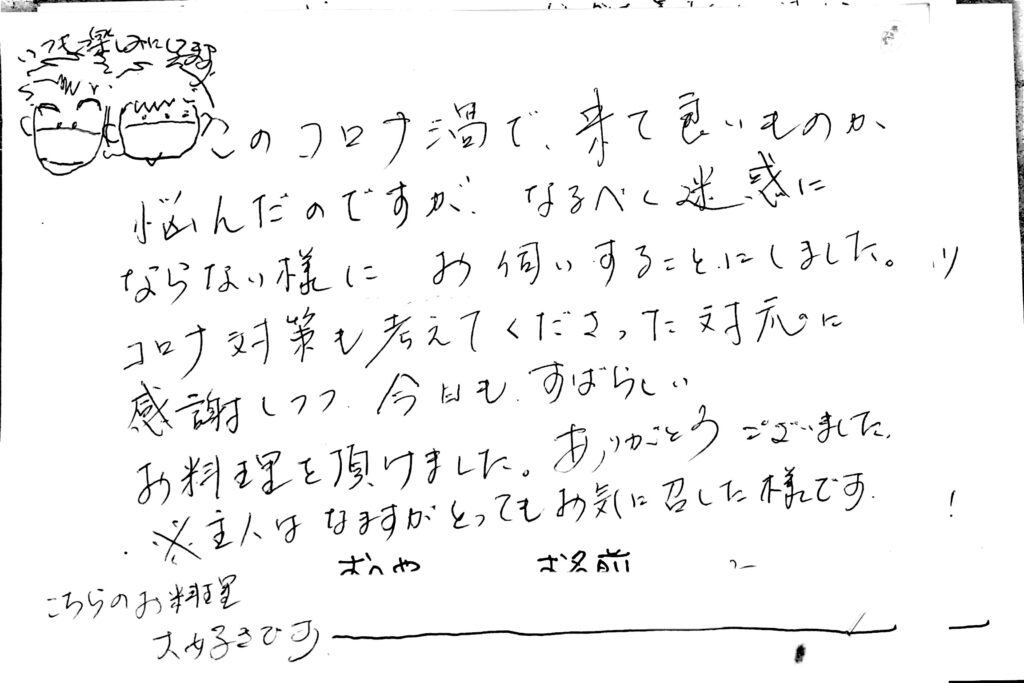 いつも楽しみにしてます
このコロナ渦で、来て良いものか
悩んだのですが、なるべく迷惑に
ならない様に お伺いすることにしました。
コロナ対策も考えてくださった対応に
感謝しつつ、今日も、すばらしい
お料理を頂けました。ありがとうございました。
※主人はなますがとってもお気に召した様です。
おへや お名前
こちらのお料理
大好きです